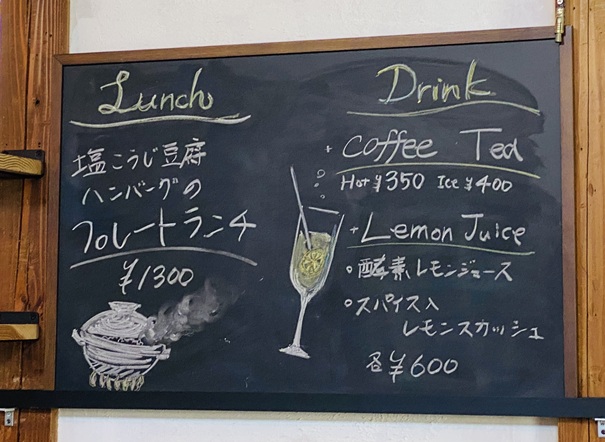 Lunch
塩こうじ豆腐
ハンバーグの
プレートランチ
¥1300
Drink
Coffee Tea
Hot ¥350 Ice ¥400
Lemon Juice
酵素レモンジュース
スパイス入
レモンスカッシュ
各¥600